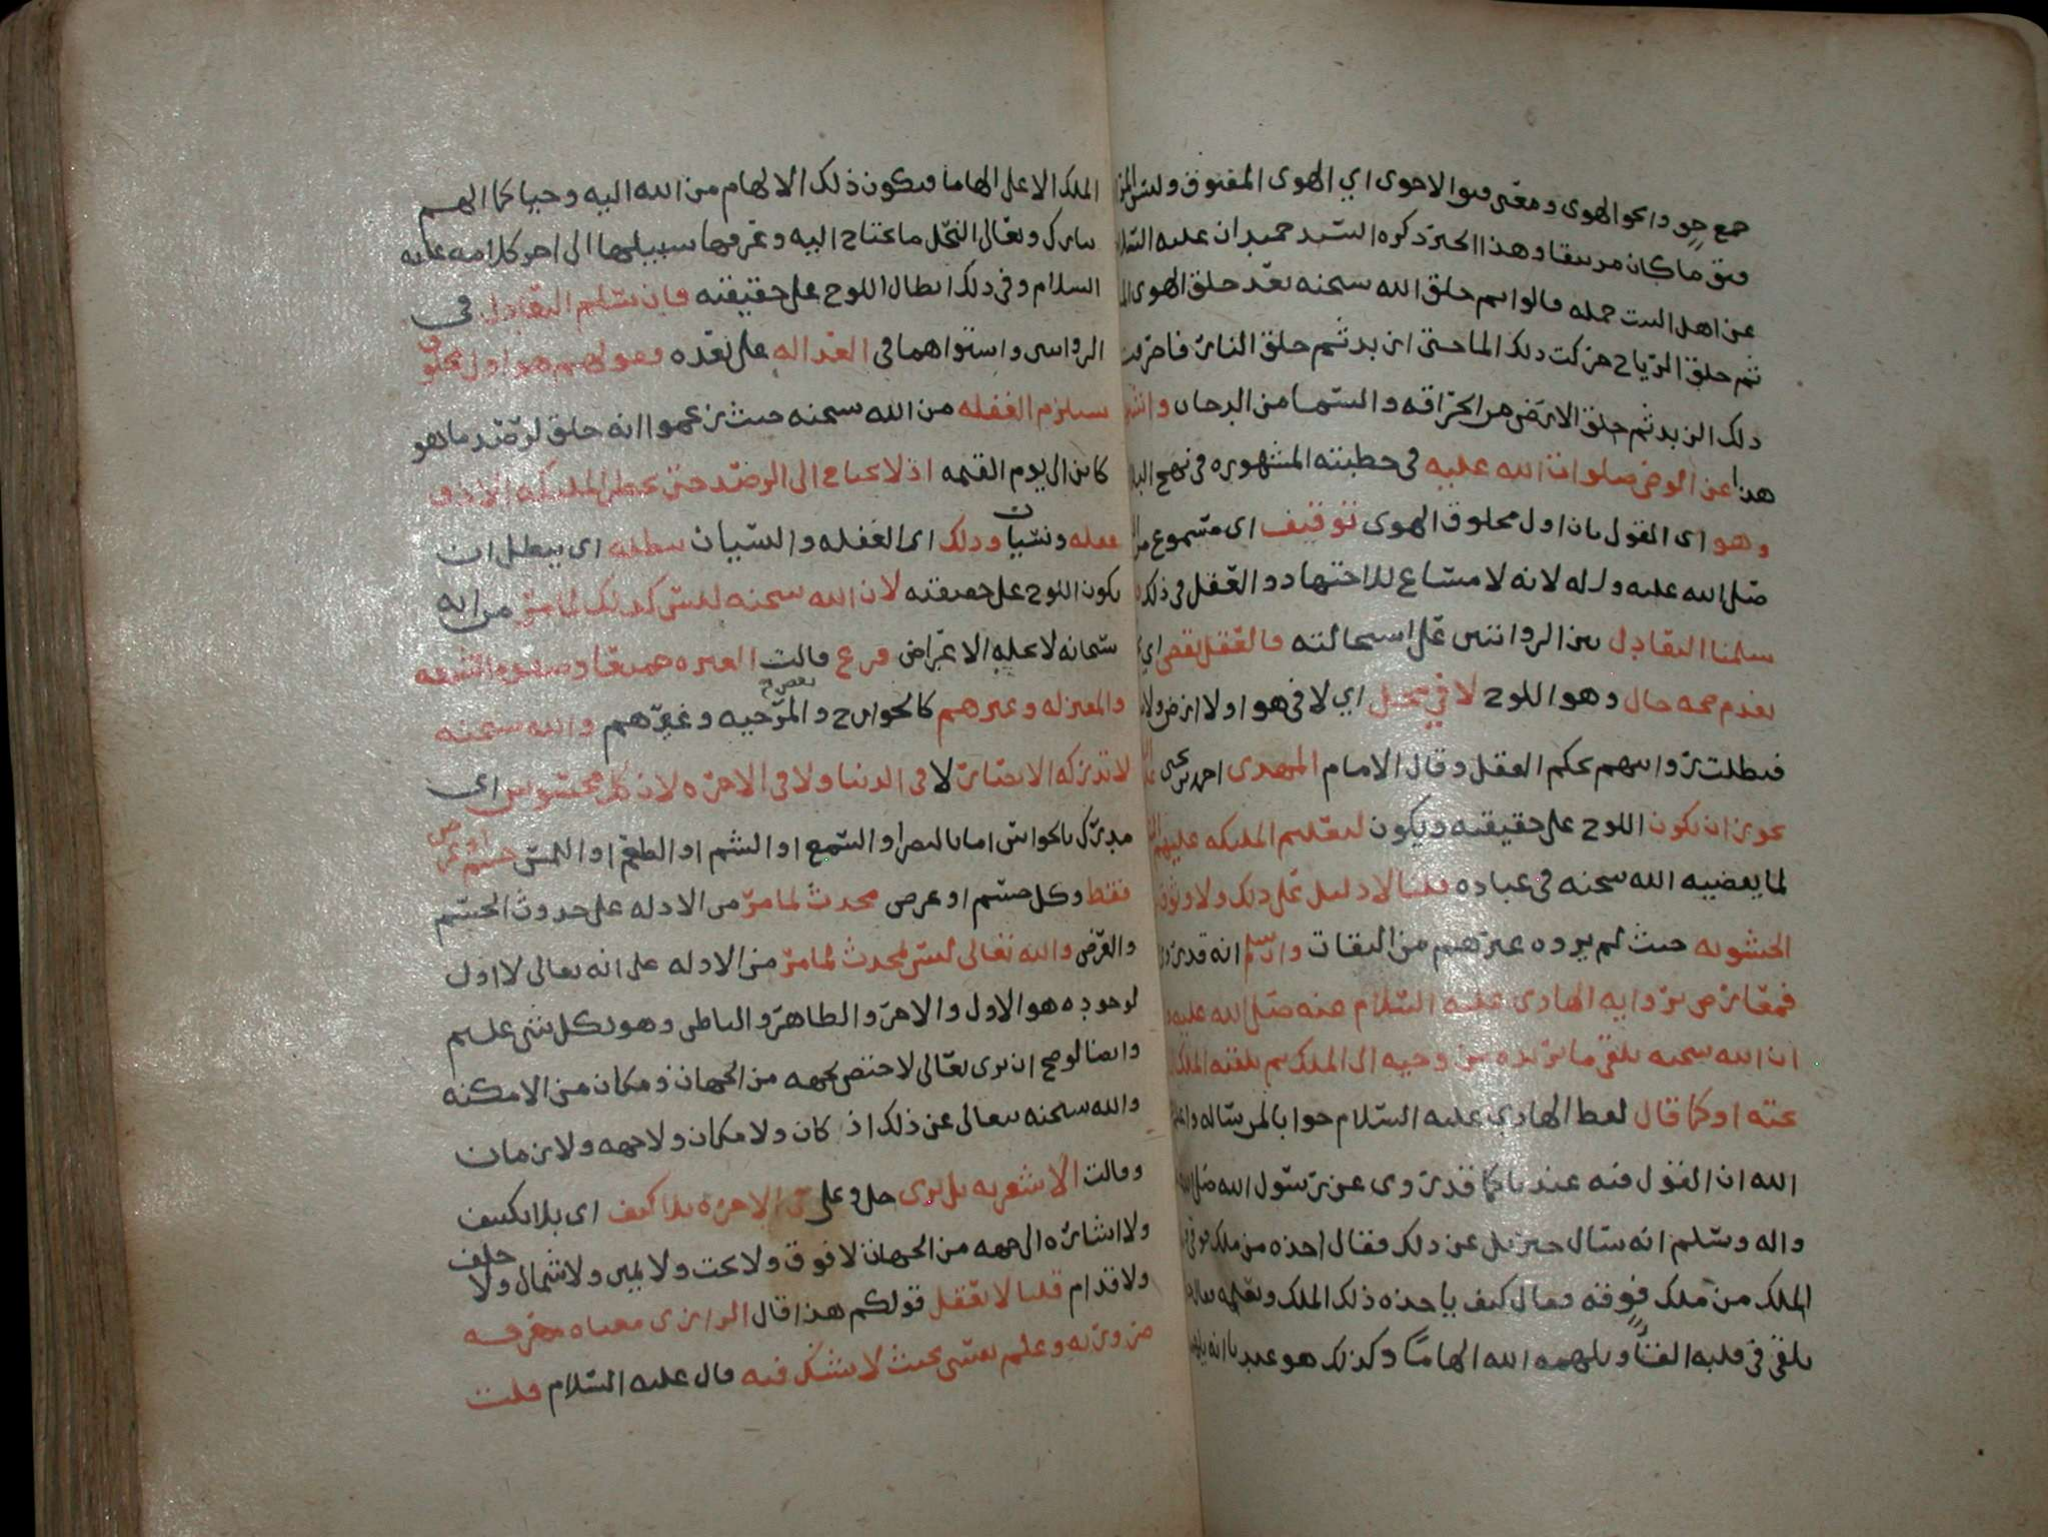 جمع جو والجو الهوى ومعنى فتق الاجوى اي الهوى المفتوق وليس المراد
فتق ما كان مرتتقا وهذا الخبر ذكره السيد حميدان عليه السلام
عن اهل البيت جمله قالوا ثم خلق الله سبحنه بعد خلق الهوى الما
ثم خلق الرياح فحركت ذلك الما حتى ازبد ثم خلق النار فاحرقت
ذلك الزبد ثم خلق الارض من الحراقه والسما من الدخان
هذا عن الوصي صلوات الله عليه في خطبته المشهوره في نهج
وهو اي القول بان اول مخلوق الهوى توقيف اي مسموع
صلى الله عليه واله لانه لا مساغ للاجتهاد والعقل في ذلك
سلمنا التعادل بين الروايتين على استحالته فالعقل يقضي
بعدم صحه حال وهو اللوح لا في محل اي لا في هوا ولا ارض ولا
فبطلت روايتهم بحكم العقل وقال الامام المهدي احمد بن يحيى
يجوز ان يكون اللوح على حقيقته ويكون لتعليم الملئكه عليهم
لما يقضيه الله سبحنه في عباده قلنا لا دليل على ذلك ولا وثوق
الحشويه حيث لم يروه غيرهم من الثقات وان سلم انه قد
فمعارض بروايه الهادي عليه السلام عنه صلى الله عليه
ان الله سبحنه يلقي ما يريده من وحيه الى الملك ثم يلقنه الملك
تحته او كما قال لفظ الهادي عليه السلام جوابا لمن ساله
الله ان القول فيه عندنا كما قد روي عن رسول الله صلى الله
واله وسلم انه سال جبريل عن ذلك فقال اخذه من ملك فوقي
الملك من ملك فوقه فقال كيف ياخذه ذلك الملك ويعلمه
يلقى في قلبه القا ويلهمه الله الهاما وكذلك هو عندنا انه
الملك الاعلى الهاما فيكون ذلك الالهام من الله اليه وحيا كما الهم
تبارك وتعالى النحل ما تحتاج اليه وعرفها سبيلها الى اخر كلامه عليه
السلام وفي ذلك ابطال اللوح على حقيقته فان سلم التعادل في
الرواسى واستواهما في العداله على بعده وقولهم هو اول مخلوق
يستلزم الغفله من الله سبحنه حيث زعموا انه خلق لرصد ما هو
كاين الى يوم القيمه اذ لا يحتاج الى الرصد حتى
غفله ونسيان وذلك اي الغفله والنسيان يبطله اي يبطل ان
يكون اللوح على حقيقته لان الله سبحنه ليس كذلك لما مر من انه
سبحانه لا تحله الاعراض فرع قالت العتره جميعا وصفوه الشيعه
والمعتزله وغيرهم كالخوارج وبعض المرجيه وغيرهم والله سبحنه
لا تدركه الابصار لا في الدنيا ولا في الاخره لان كل محسوس اي
مدرك بالحواس اما بالبصر او السمع او الشم او الطعم او اللمس جسم او عرض
فقط وكل جسم او عرض محدث لما مر من الادله على حدوث الجسم
والعرض والله تعالى ليس لمحدث لما مر من الادله على انه تعالى لا اول
لوجوده هو الاول والاخر والظاهر والباطن وهو بكل شي عليم
وايضا لو صح ان يرى تعالى لاختص بجهه من الجهات ومكان من الامكنه
والله سبحنه يتعالى عن ذلك اذ كان ولا مكان ولا جهه ولا زمان
وقالت الاشعريه بل يرى جل وعلى في الاخره بلا كيف اي بلا تكييف
ولا اشاره الى جهه من الجهات لا فوق ولا تحت ولا يمين ولا شمال ولا خلف
ولا قدام قلنا لا يعقل قولكم هذا قال الرازي معناه معرفه
ضروريه وعلم نفسي بحيث لا يشك فيه قال عليه السلام قلت